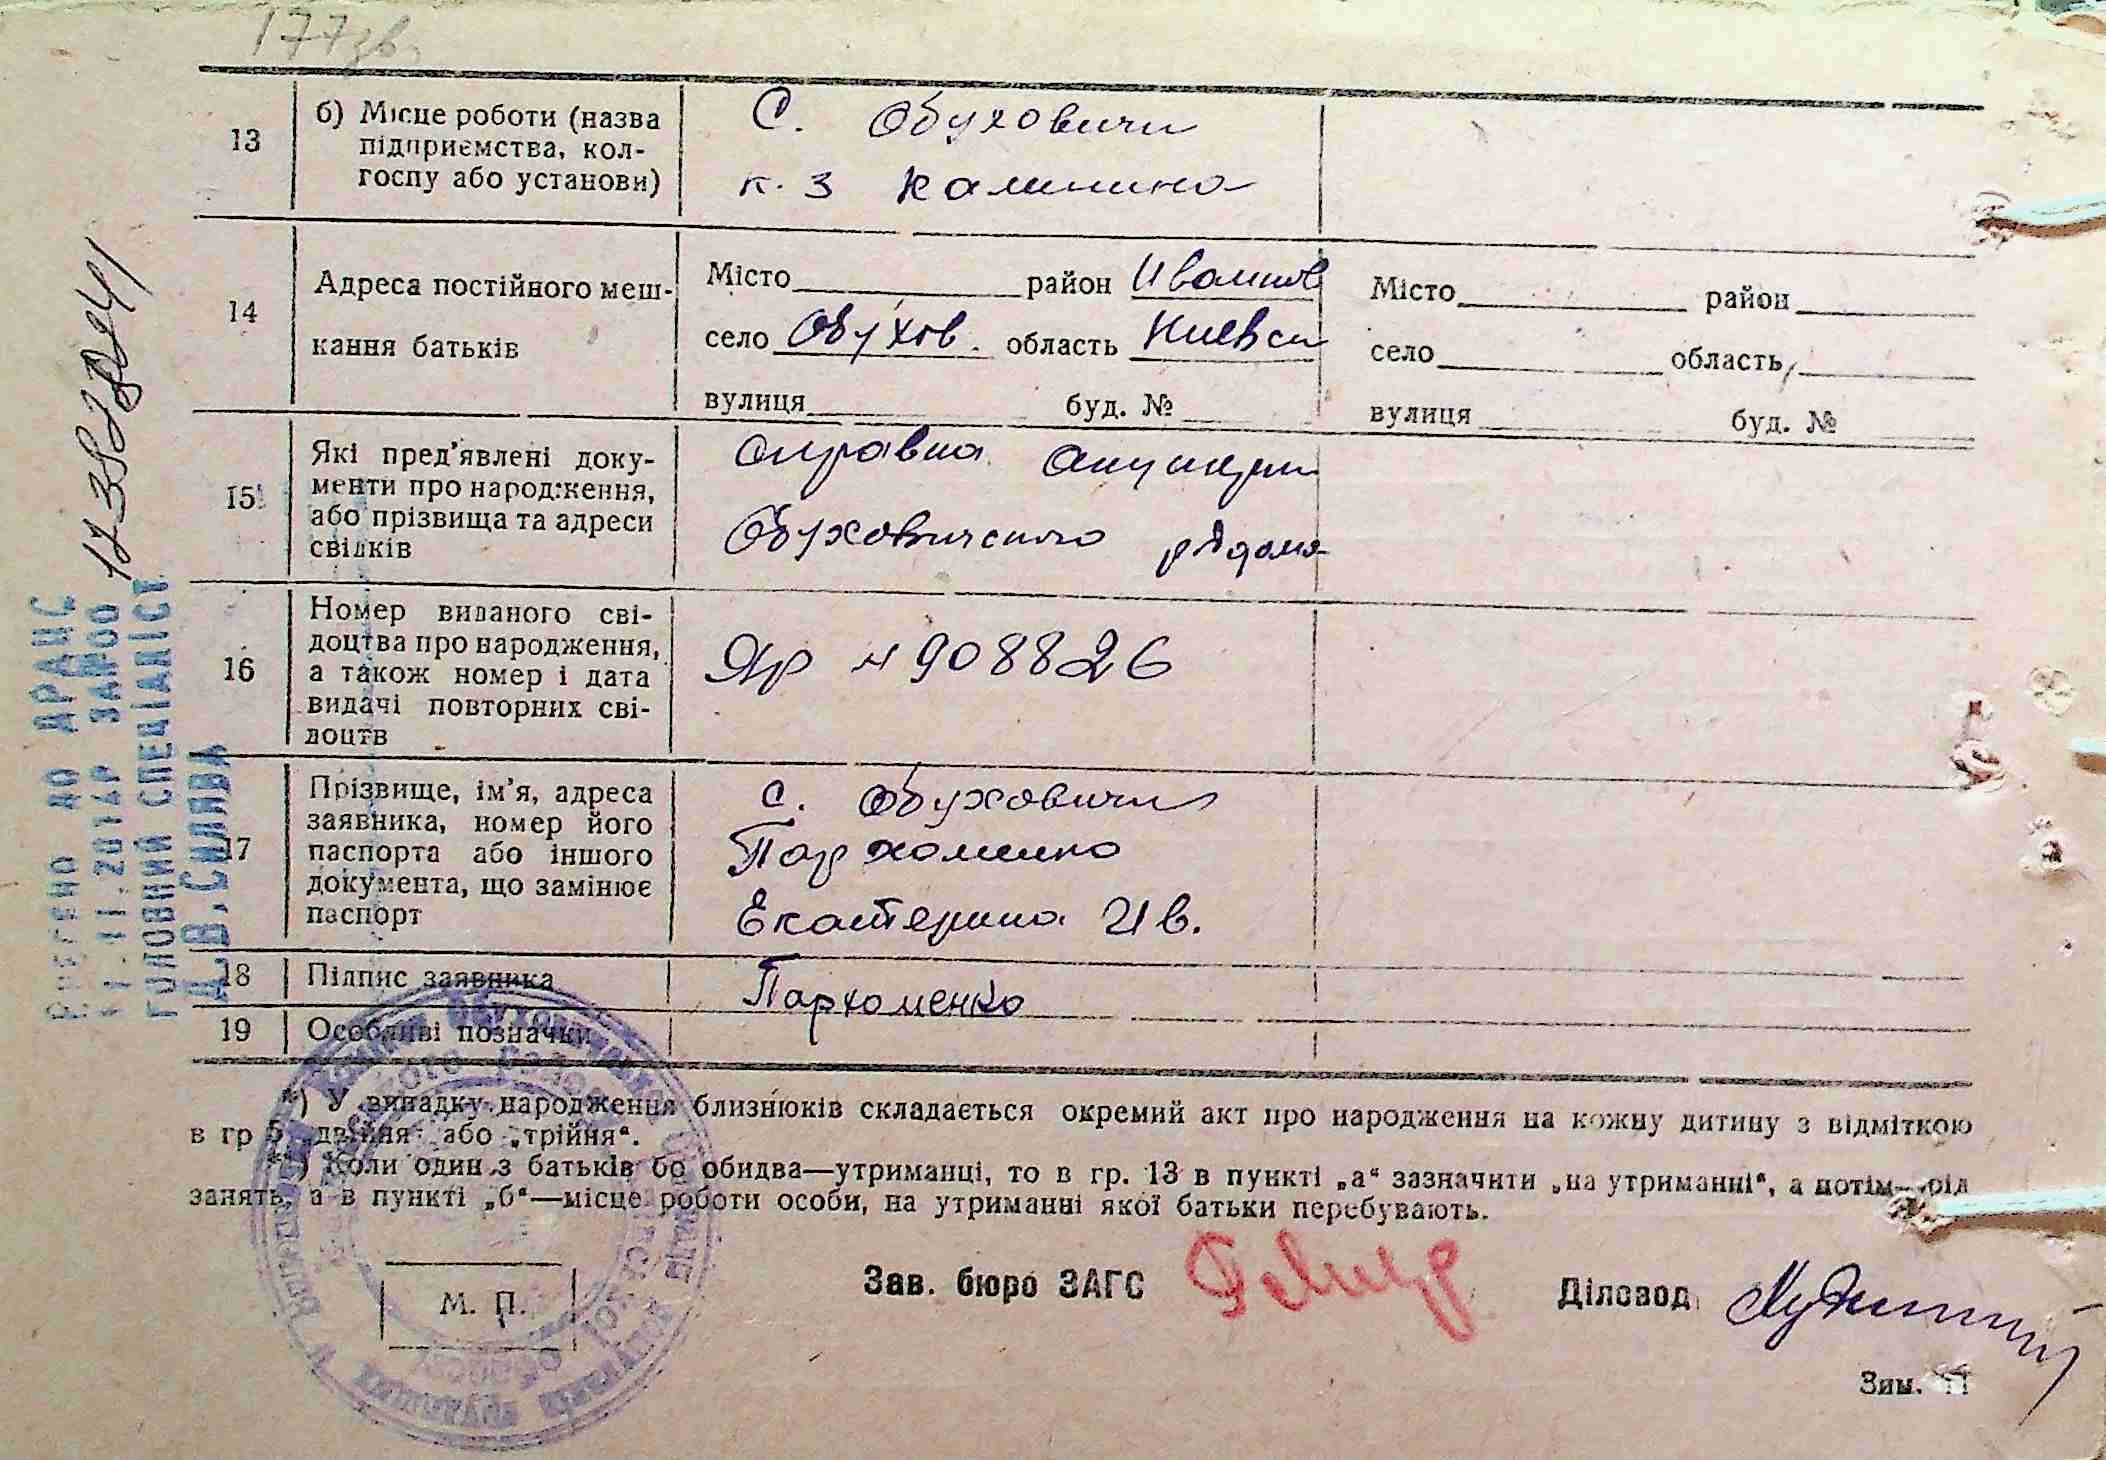 177зв.
13
б) Місце роботи (назва
підприємства, кол-
госпу або установи)
С. Обуховичи
к. з Калинина
14
Адреса постійного меш-
кання батьків
Місто район Иванков
село Обухов. область Киевск
вулиця буд. №
Місто район
село область
вулиця буд. №
15
Які пред'явлені доку-
менти про народження,
або прізвища та адреси
свідків
Справка акушерки
Обуховичского роддома
16
Номер виданого сві-
доцтва про народження,
а також номер і дата
видачі повторних сві-
доцтв
ЯР N 908826
17
Прізвище, ім'я, адреса
заявника, номер його
паспорта або іншого
документа, що замінює
паспорт
С. Обуховичи
Пархоменко
Екатерина Ив.
18
Підпис заявника
Пархоменко
19
Особливі позначки
*) У випадку народження близнюків складається окремий акт про народження на кожну дитину з відміткою
в гр 5 „двійня" або „трійня".
**) Коли один з батьків бо обидва—утриманці, то в гр. 13 в пункті „а" зазначити „на утриманні", а потім—рід
занять, а в пункті „б"—місце роботи особи, на утриманні якої батьки перебувають.
М. П.
Зав. бюро ЗАГС
Діловод
Зим. 11
Внесено до ДРАЦС
ГОЛОВНИЙ СПЕЦІАЛІСТ
Д.В.СИЛЯВА